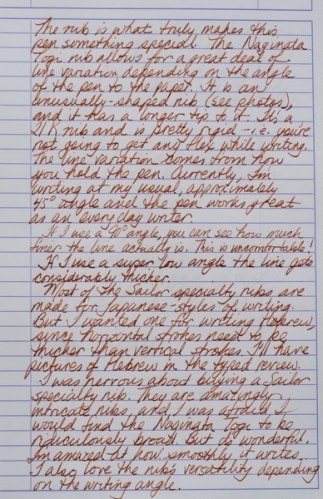 The nib is what truly makes this
pen something special. The Naginata
Togi nib allows for a great deal of
line variation depending on the angle
of the pen to the paper. It is an
unusually-shaped nib (see photos),
and it has a longer tip to it. It's a
21K nib and is pretty rigid - i.e. you're
not going to get any flex while writing.
The line variation comes from how
you hold the pen. Currently, I'm
writing at my usual, approximately
45° angle and the pen works great
as an everyday writer.
If I use a 90° angle, you can see how much
finer the line actually is. This is uncomfortable!
If I use a super low angle the line gets
considerably thicker.
Most of the Sailor specialty nibs are
made for Japanese-styles of writing.
But I wanted one for writing Hebrew,
since horizontal strokes need to be
thicker than vertical strokes. I'll have
pictures of Hebrew in the typed review.
I was nervous about buying a Sailor
specialty nib. They are amazingly
intricate nibs, and I was afraid I
would find the Naginata Togi to be
ridiculously broad. But it's wonderful.
I'm amazed at how smoothly it writes.
I also love the nib's versatility depending
on the writing angle.